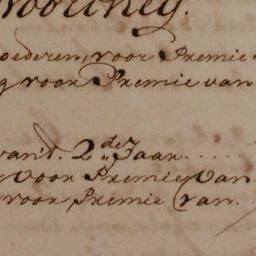 oederen, voor Premie
g voor Premie van
van't. 2 der Jaar.....
voor Premie van
voor Premie van.